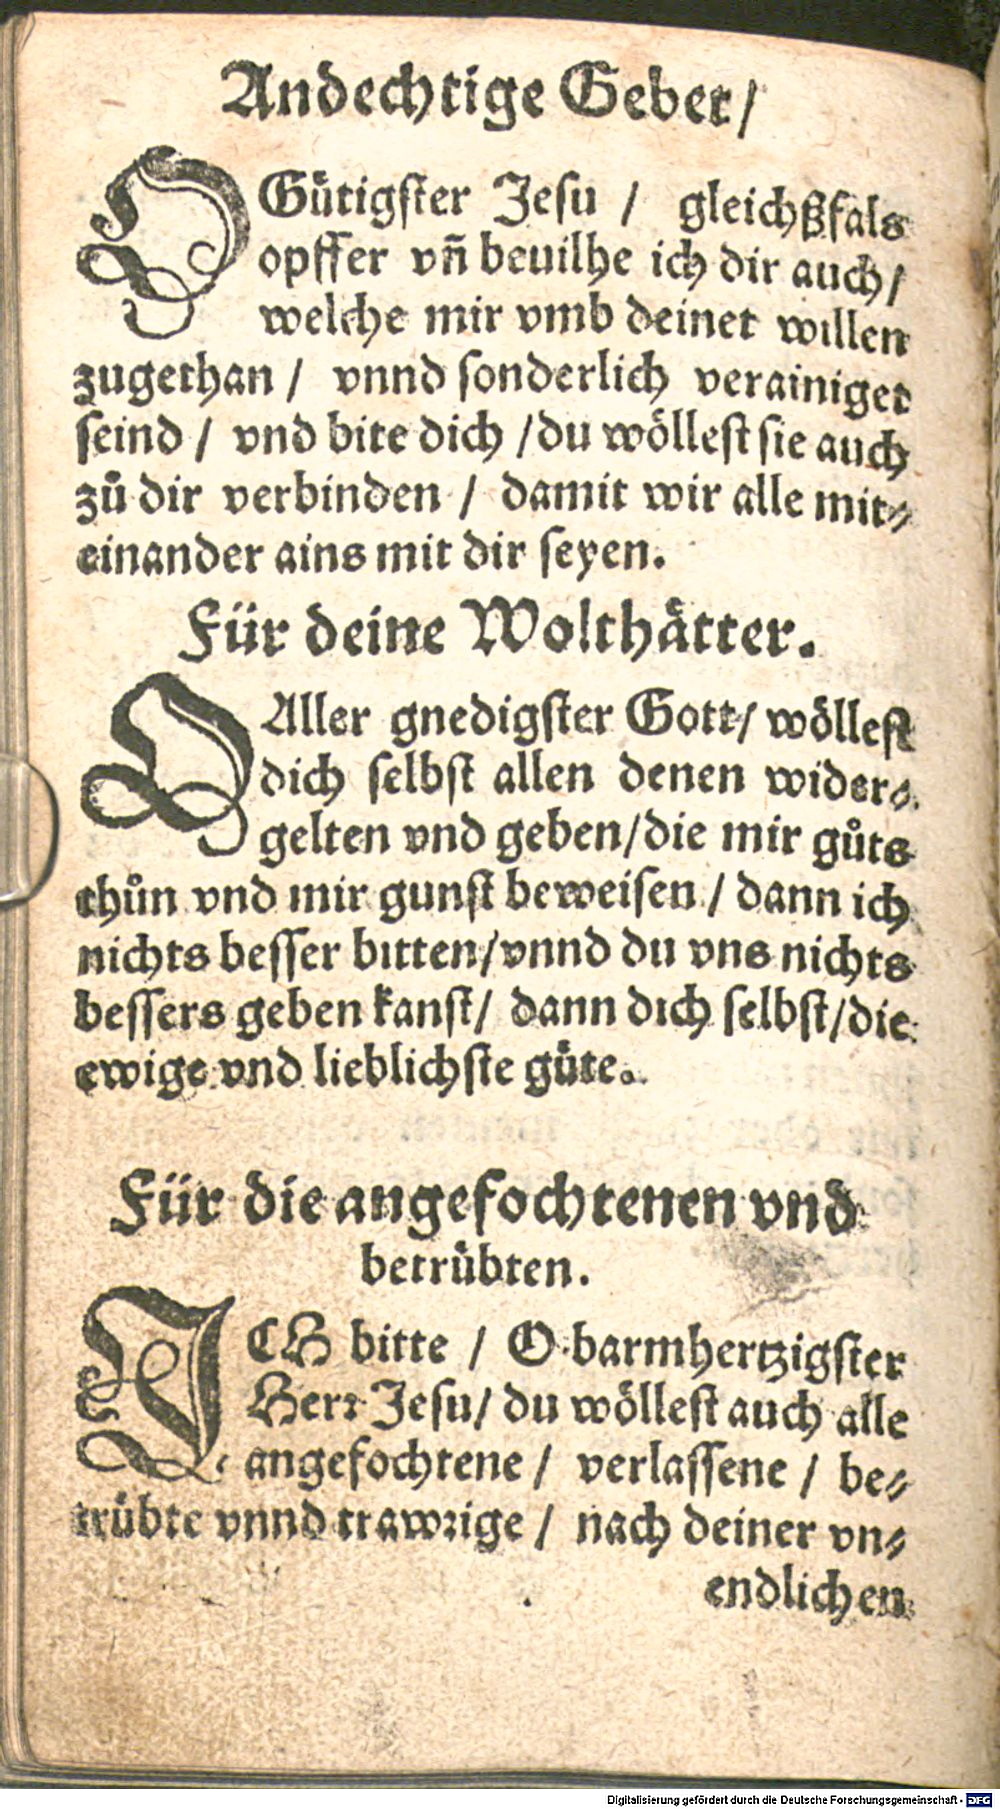 Andechtige Gebet/
O Gütigster Jesu / gleichßfals
opffer vñ beuilhe ich dir auch/
welche mir vmb deinet willen
zugethan / vnnd sonderlich verainiget
seind / vnd bite dich /du wöllest sie auch
zů dir verbinden / damit wir alle mit⸗
einander ains mit dir seyen.
Für deine Wolthätter.
O Aller gnedigster Gott/ wöllest
dich selbst allen denen wider⸗
gelten vnd geben/die mir gůts
thůn vnd mir gunst beweisen / dann ich
nichts besser bitten/vnnd du vns nichts
bessers geben kanst/ dann dich selbst/die
ewige vnd lieblichste güte.
Für die angefochtenen vnd
betrübten.
ICH bitte / O barmhertzigster
Herr Jesu/ du wöllest auch alle
angefochtene / verlassene / be⸗
trübte vnnd trawrige / nach deiner vn⸗
endlichen
Digitalisierung gefördert durch die Deutsche Forschungsgemeinschaft - DFG